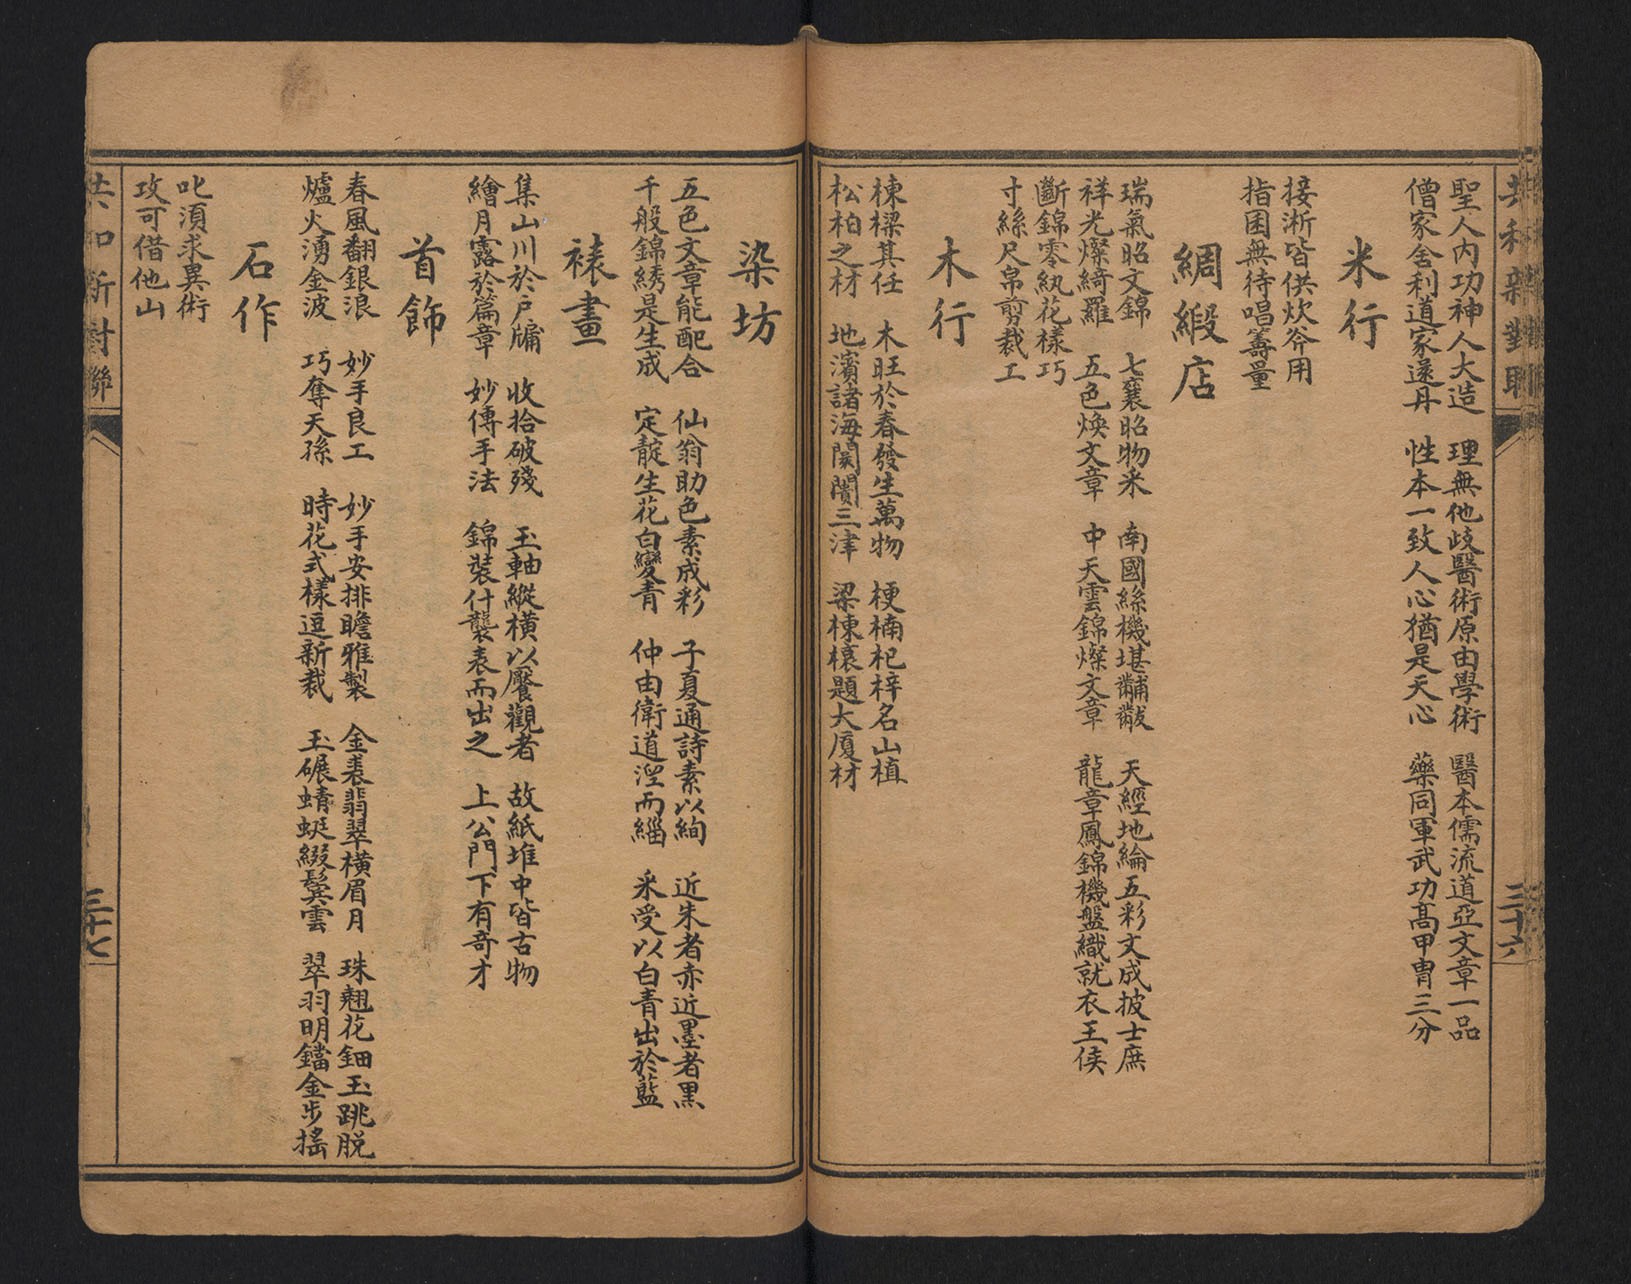 共和新對聯
三十六
聖人內功神人大造 理無他歧醫術原由學術 醫本儒流道亞文章一品
僧家舍利道家還丹 性本一致人心猶是天心 藥同軍武功高甲冑三分
米行
接淅皆供炊爨用
指囷無待唱籌量
綢緞店
瑞氣昭文錦 七襄昭物采 南國絲機堪黼黻 天經地綸五彩文成披士庶
祥光燦綺羅 五色煥文章 中天雲錦燦文章 龍章鳳錦機盤織就衣王侯
斷錦零紈花樣巧
寸絲尺帛剪裁工
木行
棟樑其任 木旺於春發生萬物 梗楠杞梓名山植
松柏之材 地濱諸海闤闠三津 梁棟榱題大廈材
染坊
五色文章能配合 仙翁助色素成彩 子夏通詩素以絢 近朱者赤近墨者黑
千般錦綉是生成 定靛生花白變青 仲由衛道涅而緇 采受以白青出於藍
裱畫
集山川於戶牖 收拾破殘 玉軸縱橫以饜觀者 故紙堆中皆古物
繪月露於篇章 妙傳手法 錦裝什襲表而出之 上公門下有奇才
首飾
春風翻銀浪 妙手良工 妙手安排瞻雅製 金裹翡翠橫眉月 珠翹花鈿玉跳脫
爐火湧金波 巧奪天孫 時花式樣逗新裁 玉碾蜻蜓綴鬓雲 翠羽明鐺金步搖
石作
叱須求異術
攻可借他山
共和新對聯
三十七